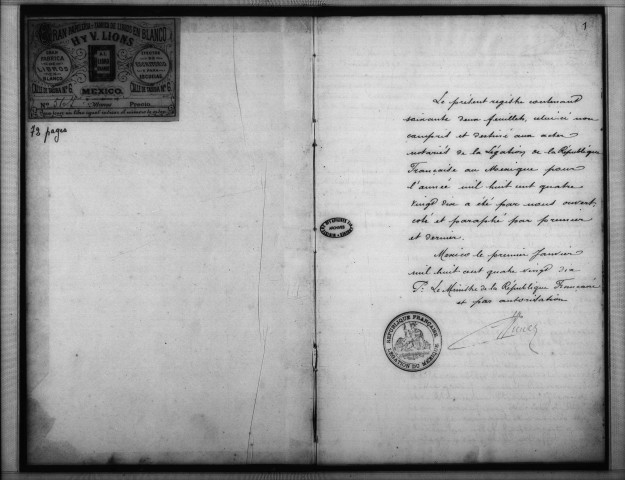 GRAN PAPELERIA Y FABRICA DE LIBROS EN BLANCO
H Y V. LIONS
GRAN
FABRICA
DE
LIBROS
EN
BLANCO
CALLE DE TACUBA Nº 6.
MEXICO.
CALLE DE TACUBA Nº 6.
Nº
Precio
73 pages
1
Le présent registre contenant
soixante deux feuillets, celui-ci non
compris et destiné aux actes
notariés de la Légation de la République
Française au Mexique pour
l'année mil huit cent quatre
vingt dix a été par nous ouvert,
coté et paraphé par premier
et dernier.
Mexico le premier Janvier
mil huit cent quatre vingt dix
P: Le Ministre de la République Française
et par autorisation
REPUBLIQUE FRANÇAISE
LEGATION DU MEXIQUE
ARCHIVES